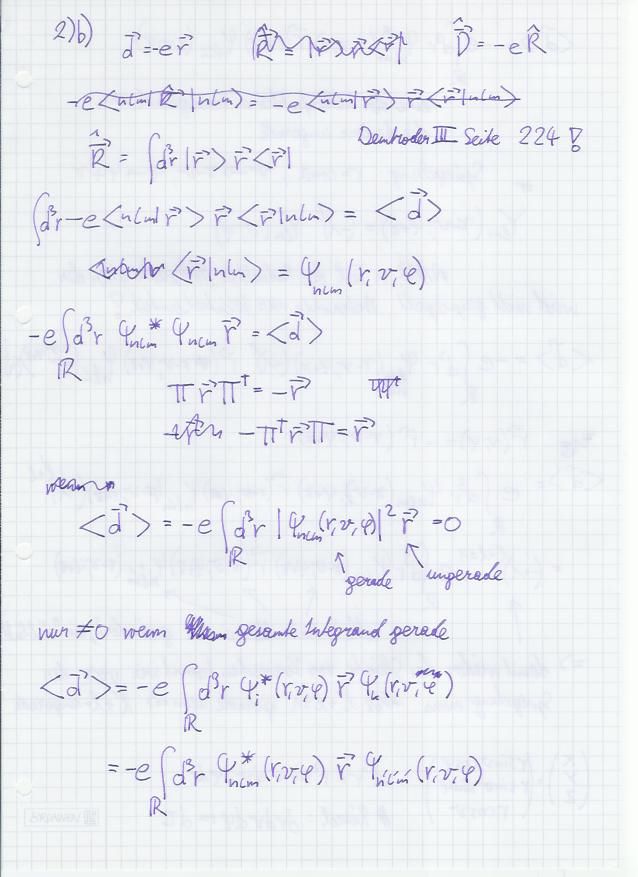 2)b) \vec{d} = -e\vec{r} \hat{\vec{D}} = -e\hat{R}
-e<nlm|\hat{\vec{R}}|nlm> = -e<nlm|\vec{r}> \vec{r} <\vec{r}|nlm>
Demtröder III Seite 224 !
\hat{\vec{R}} = ∫d³r |\vec{r}> \vec{r} <\vec{r}|
∫d³r -e<nlm|\vec{r}> \vec{r} <\vec{r}|nlm> = <\vec{d}>
<\vec{r}|nlm> = ψ_{nlm}(r,ϑ,φ)
-e ∫_ℝ d³r ψ_{nlm}^* ψ_{nlm} \vec{r} = <\vec{d}>
Π \vec{r} Π^† = -\vec{r}
-Π^† \vec{r} Π = \vec{r}
wenn
<\vec{d}> = -e ∫_ℝ d³r |ψ_{nlm}(r,ϑ,φ)|² \vec{r} = 0
↖ gerade ↖ ungerade
nur ≠0 wenn gesamte Integrand gerade
<\vec{d}> = -e ∫_ℝ d³r ψ_i^*(r,ϑ,φ) \vec{r} ψ_k(r,ϑ,φ)
= -e ∫_ℝ d³r ψ_{nlm}^*(r,ϑ,φ) \vec{r} ψ_{n'l'm'}(r,ϑ,φ)